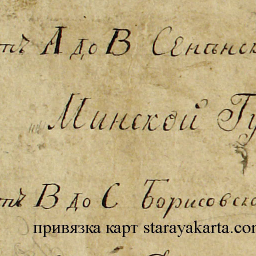 отъ А до В Сѣннск
Минской Гу
отъ В до С Борисовска
привязка карт starayakarta.com